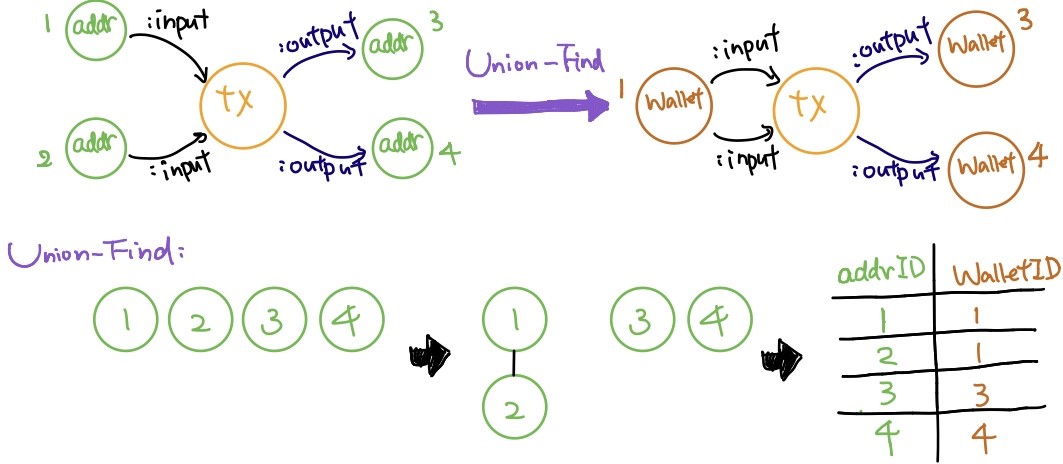 1 addr :input
2 addr :input
tx
:output addr 3
:output addr 4
Union-Find
1 Wallet :input
:input
tx
:output Wallet 3
:output Wallet 4
Union-Find:
1 2 3 4
1
2
3 4
addrID WalletID
1 1
2 1
3 3
4 4